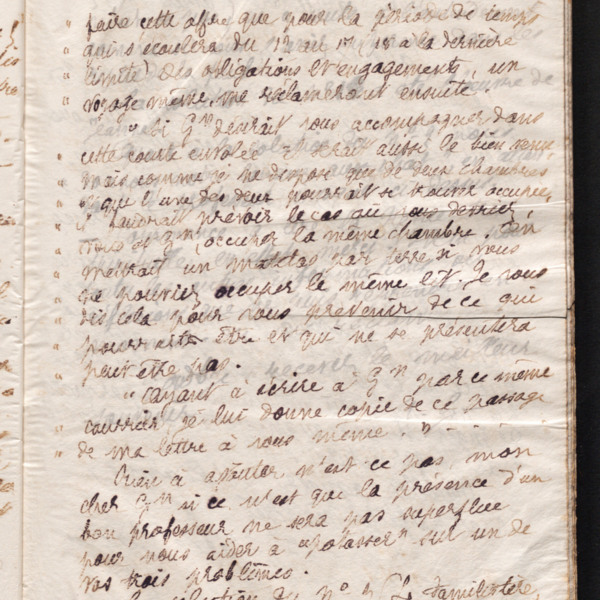 " faite cette offre que pour la période de temps
" qui s'écoulera du 1er au 17 18 a la dernière
" limite) Des obligations et engagements, un
" voyage même, me réclameront ensuite.
" "Si Gn désirait vous accompagner dans
" cette courte envolée il serait aussi le bien venu,
" mais comme je ne dispose que de deux chambres
" et que l'une des deux pourrait se trouver occupée,
" il faudrait prévoir le cas où vous devriez,
" vous et Gn, occuper la même chambre. On
" mettrait un matelas par terre si vous
" ne pouviez occuper le même lit. Je vous
" dis cela pour vous prévenir de ce qui
" pourrait être et qui ne se présentera
" peut être pas.
" "Ayant à écrire à Gn par ce même
" courrier, je lui donne copie de ce passage
" de ma lettre à vous même." - - - -
Rien à ajouter n'est ce pas, mon
cher Gn si ce n'est que la présence d'un
bon professeur ne sera pas superflue
pour nous aider à "potasser" sur un de
vos trois problèmes.
solution du no 2 (L Familistère,